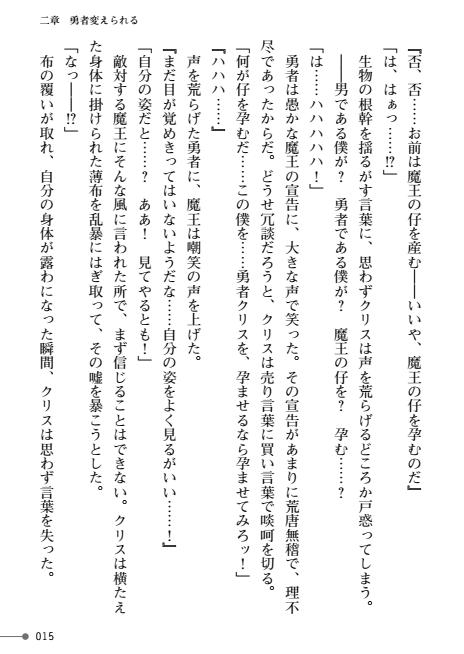 二章　勇者変えられる
『否、否……お前は魔王の仔を産む――いいや、魔王の仔を孕むのだ』
「は、はぁっ……!?」
　生物の根幹を揺るがす言葉に、思わずクリスは声を荒らげるどころか戸惑ってしまう。
　――男である僕が？　勇者である僕が？　魔王の仔を？　孕む……？
「は……ハハハハハ！」
　勇者は愚かな魔王の宣告に、大きな声で笑った。その宣告があまりに荒唐無稽で、理不
尽であったからだ。どうせ冗談だろうと、クリスは売り言葉に買い言葉で啖呵を切る。
「何が仔を孕むだ……この僕を……勇者クリスを、孕ませるなら孕ませてみろッ！」
『ハハハ……』
　声を荒げた勇者に、魔王は嘲笑の声を上げた。
『まだ目が覚めきってはいないようだな……自分の姿をよく見るがいい……！』
「自分の姿だと……？　ああ！　見てやるとも！」
　敵対する魔王にそんな風に言われた所で、まず信じることはできない。クリスは横たえ
た身体に掛けられた薄布を乱暴にはぎ取って、その嘘を暴こうとした。
「なっ――!?」
　布の覆いが取れ、自分の身体が露わになった瞬間、クリスは思わず言葉を失った。
015